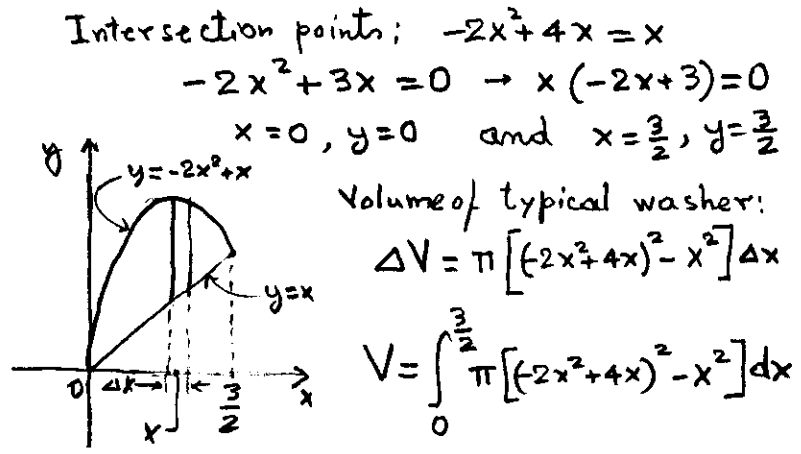 Intersection points: -2x²+4x=x
-2x²+3x=0 → x(-2x+3)=0
x=0, y=0 and x=3/2, y=3/2
y
y=-2x²+x
Volume of typical washer:
ΔV=π[(-2x²+4x)²-x²]Δx
y=x
V=∫₀^(3/2) π[(-2x²+4x)²-x²]dx
0 Δx → ← 3/2 x
x